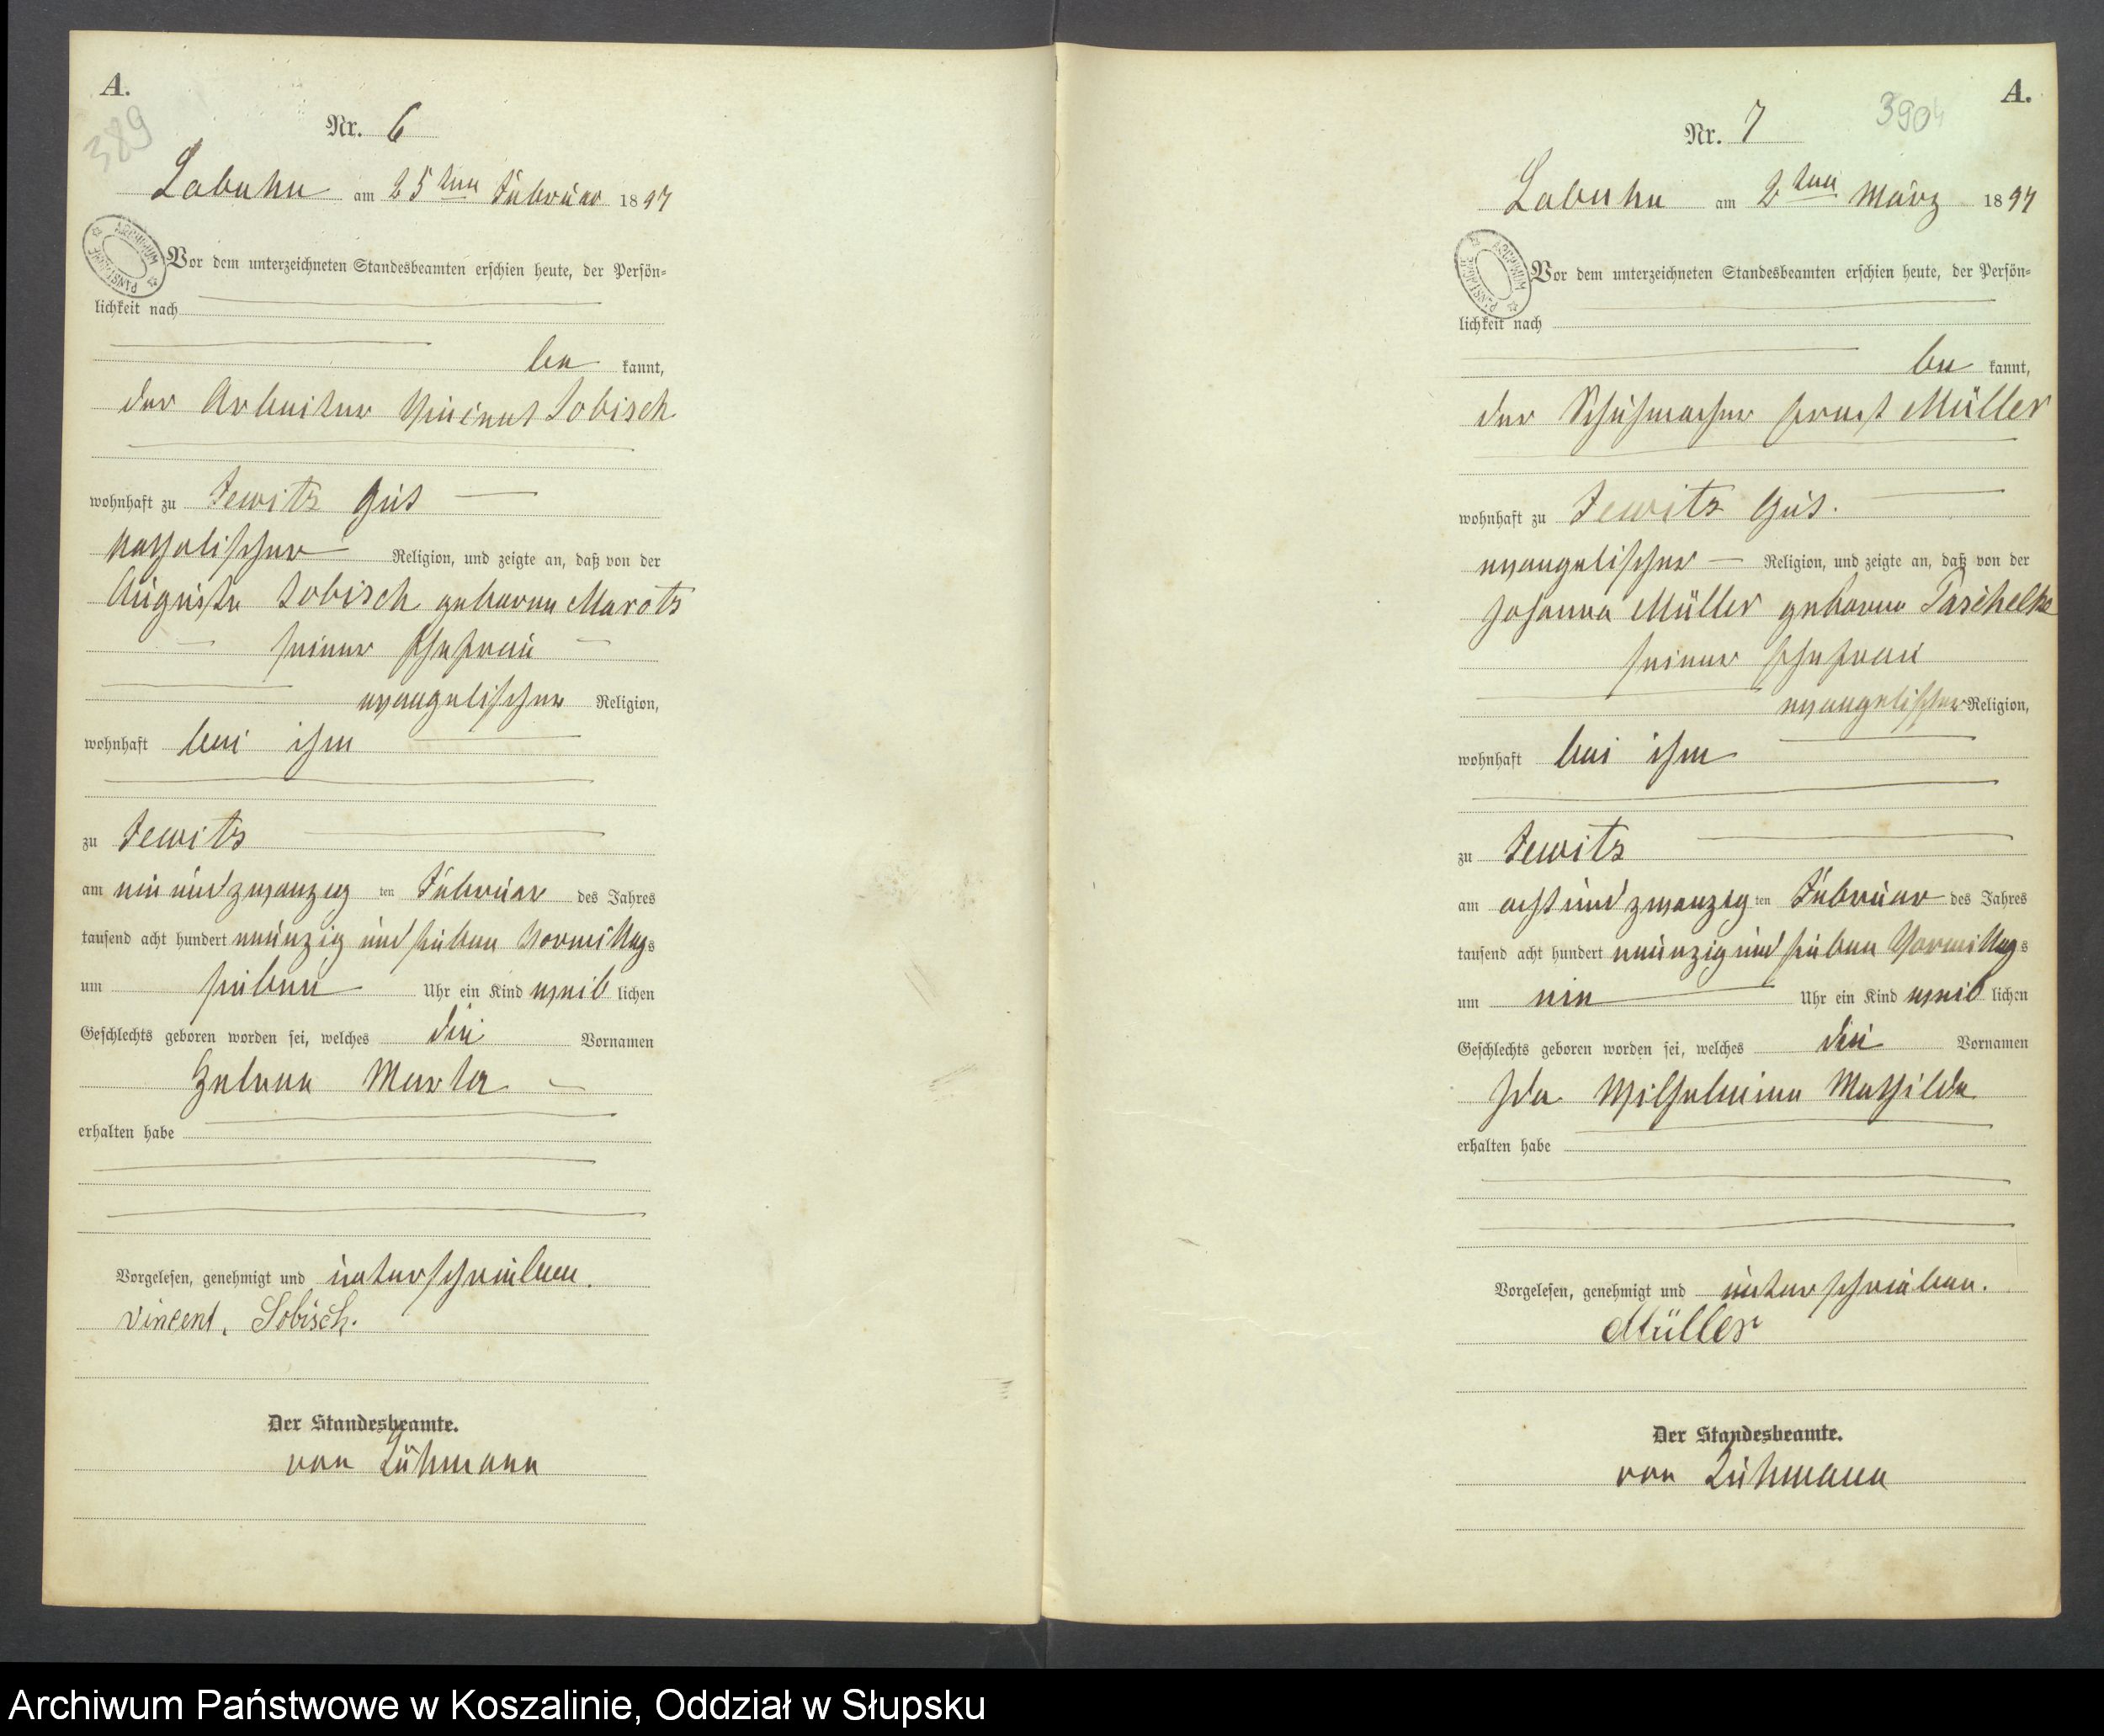 A.
389
Nr. 6
Labuhn am 25ten Februar 1897
ARCHIWUM PAŃSTWOWE
Vor dem unterzeichneten Standesbeamten erschien heute, der Persön=
lichkeit nach
be kannt,
der Arbeiter Vincent Sobisch
wohnhaft zu Jewitz Gut
katholischer Religion, und zeigte an, daß von der
Auguste Sobisch geborene Marots
seiner Ehefrau
evangelischer Religion,
wohnhaft bei ihm
zu Jewitz
am ein und zwanzig ten Februar des Jahres
tausend acht hundert neunzig und sieben Vormittags
um sieben Uhr ein Kind weib lichen
Geschlechts geboren worden sei, welches die Vornamen
Helene Marta
erhalten habe
Vorgelesen, genehmigt und unterschrieben.
Vincent, Sobisch.
Der Standesbeamte.
von Lühmann
A.
390
Nr. 7
Labuhn am 2ten März 1897
ARCHIWUM PAŃSTWOWE
Vor dem unterzeichneten Standesbeamten erschien heute, der Persön=
lichkeit nach
be kannt,
der Schuhmacher Ernst Müller
wohnhaft zu Jewitz Gut.
evangelischer Religion, und zeigte an, daß von der
Johanna Müller geborene Paschelke
seiner Ehefrau
evangelischer Religion,
wohnhaft bei ihm
zu Jewitz
am acht und zwanzig ten Februar des Jahres
tausend acht hundert neunzig und sieben Vormittags
um ein Uhr ein Kind weib lichen
Geschlechts geboren worden sei, welches die Vornamen
Ida Wilhelmine Mathilde
erhalten habe
Vorgelesen, genehmigt und unterschrieben.
Müller
Der Standesbeamte.
von Lühmann
Archiwum Państwowe w Koszalinie, Oddział w Słupsku